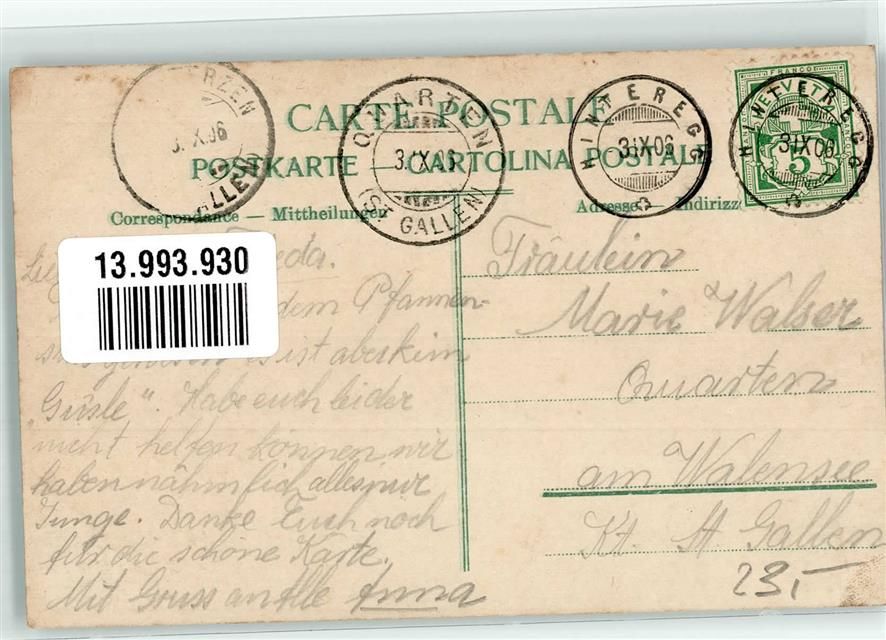 CARTE POSTALE
POSTKARTE — CARTOLINA POSTALE
Correspondance — Mittheilungen
Adresse — Indirizz
RZEN
3.X.06
GALLEN
QUARTEN
3.IX.06
(ST GALLEN)
HINTEREGG
3.IX.06
HINTEREGG
3.IX.06
FRANCO
HELVETIA
5
13.993.930
eda.
dem Pfannen-
es ist aber kein
„Güsle". Habe euch leider
nicht helfen können wir
haben nähmlich alles nur
Junge. Danke Euch noch
für die schöne Karte.
Mit Gruss an Alle Anna
Fräulein
Marie Walser
Quarten
am Walensee
Kt. St Gallen
23,-